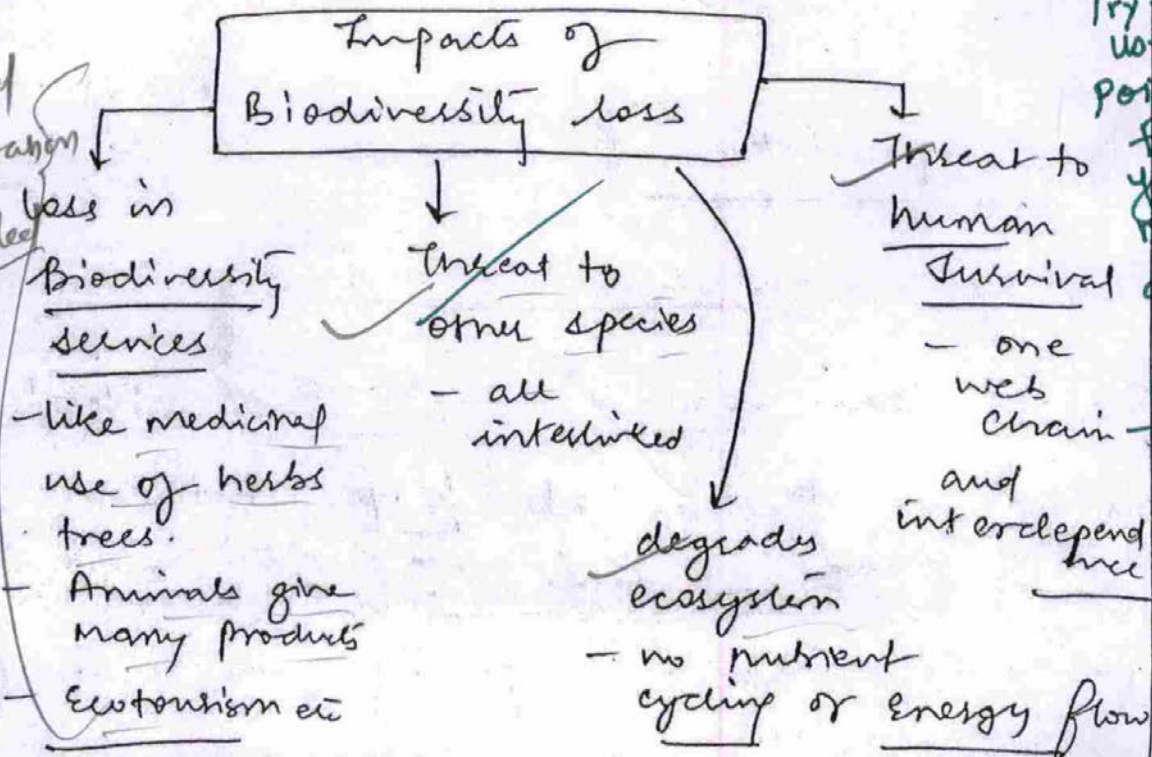 Impacts of
Biodiversity loss
Loss in
Biodiversity
services
- like medicinal
use of herbs
trees.
- Animals give
many products
- Ecotourism etc
Threat to
other species
- all
interlinked
degrades
ecosystem
- no nutrient
cycling or Energy flow
Threat to
human
Survival
- one
web
Chain -
and
interdepend
nce
Try